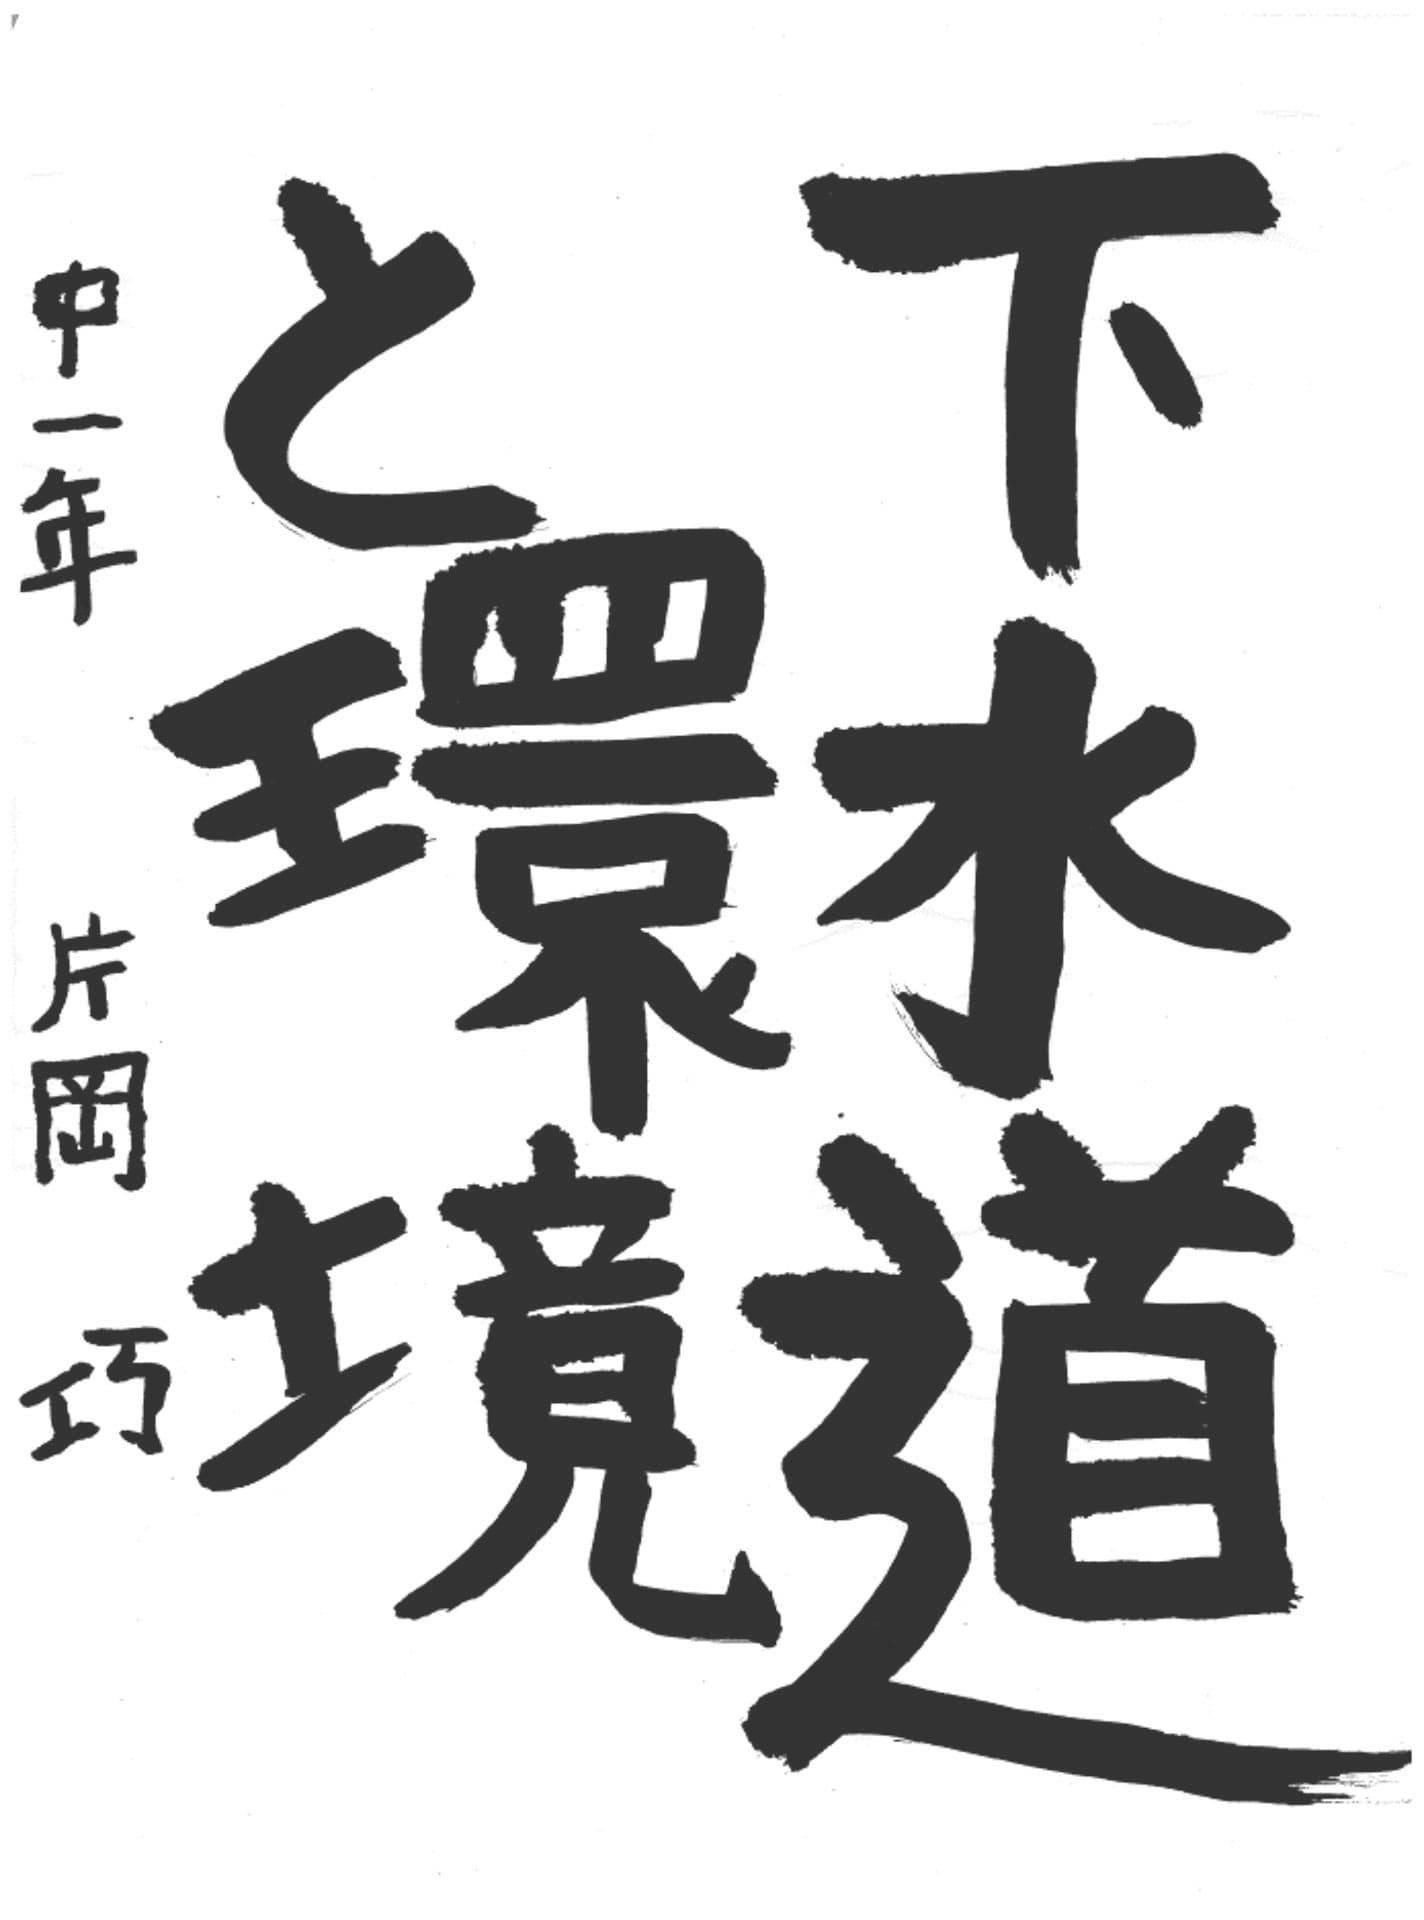 下水道
と環境
中一年 片岡 巧